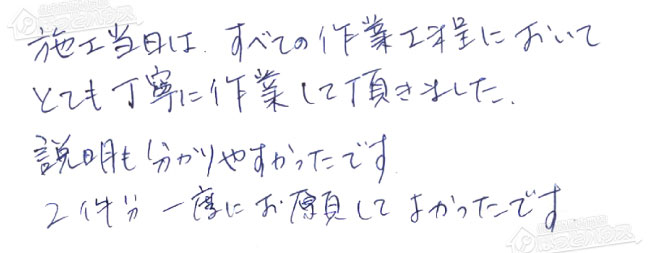 施工当日は、すべての作業工程において
とても丁寧に作業して頂きました。
説明も分かりやすかったです
2件分一度にお願してよかったです